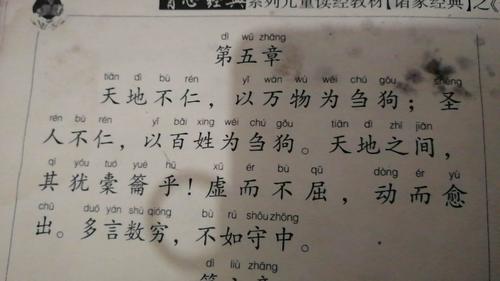 心经典系列儿童读经教材【诸家经典】之《
dì wǔ zhāng
第五章
tiān dì bù rén yǐ wàn wù wéi chú gǒu shèng
天地不仁，以万物为刍狗；圣
rén bù rén yǐ bǎi xìng wéi chú gǒu tiān dì zhī jiān
人不仁，以百姓为刍狗。天地之间，
qí yóu tuó yuè hū xū ér bù qū dòng ér yù
其犹橐籥乎！虚而不屈，动而愈
chū duō yán shù qióng bù rú shǒu zhōng
出。多言数穷，不如守中。
dì liù zhāng